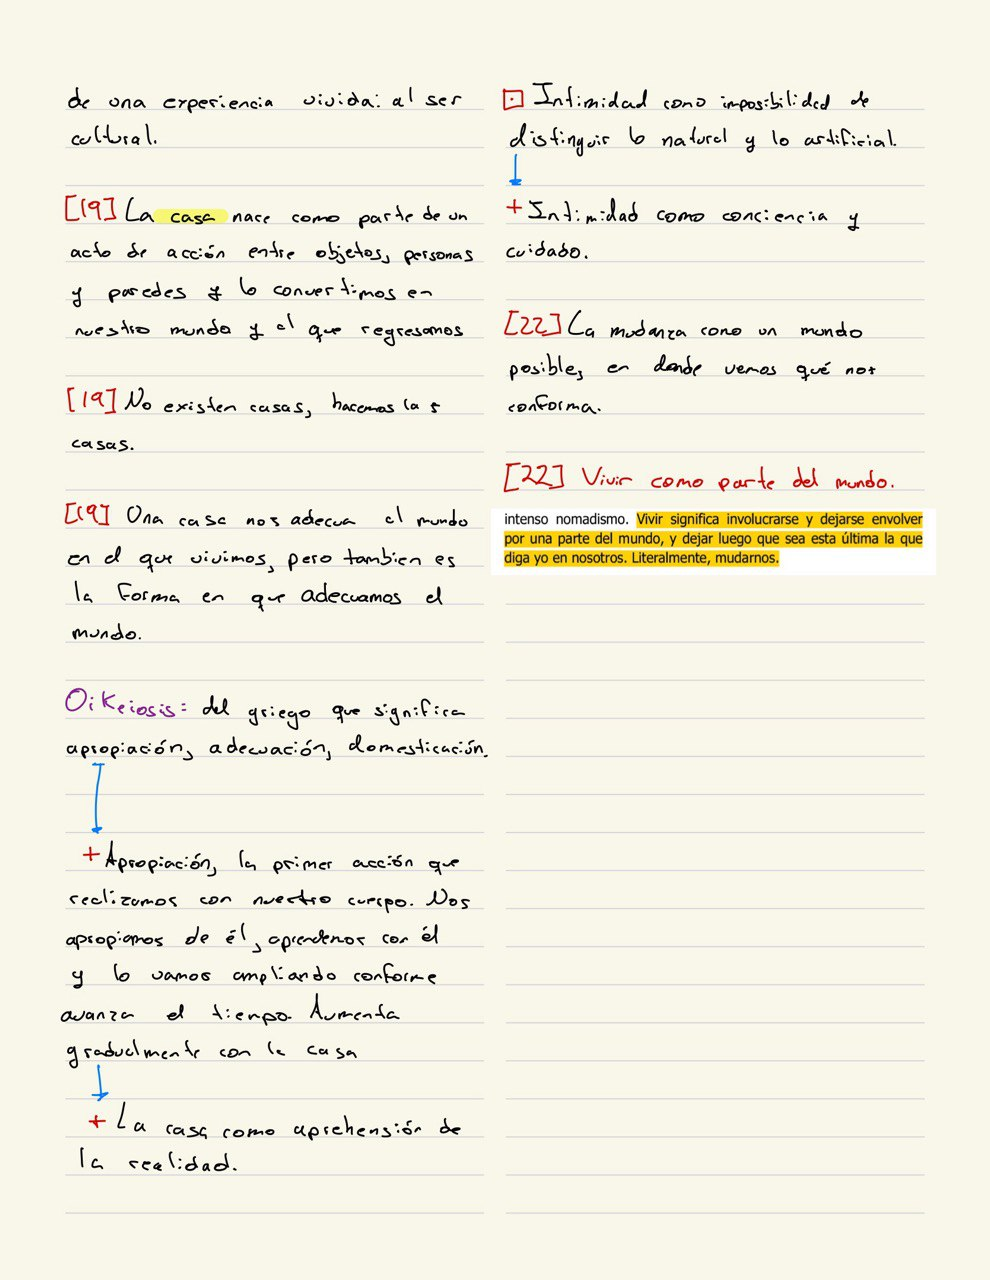 de una experiencia vivida: al ser
cultural.
[19] La casa nace como parte de un
acto de acción entre objetos, personas
y paredes y lo convertimos en
nuestro mundo y al que regresamos
[19] No existen casas, hacemos las
casas.
[19] Una casa nos adecua al mundo
en el que vivimos, pero tambien es
la forma en que adecuamos el
mundo.
Oikeiosis: del griego que significa
apropiación, adecuación, domesticación.
+ Apropiación, la primer acción que
realizamos con nuestro cuerpo. Nos
apropiamos de él, aprendemos con él
y lo vamos ampliando conforme
avanza el tiempo. Aumenta
gradualmente con la casa
+ La casa como aprehensión de
la realidad.
Intimidad como imposibilidad de
distinguir lo natural y lo artificial.
+ Intimidad como conciencia y
cuidado.
[22] La mudanza como un mundo
posible, en donde vemos qué nos
conforma.
[22] Vivir como parte del mundo.
intenso nomadismo. Vivir significa involucrarse y dejarse envolver
por una parte del mundo, y dejar luego que sea esta última la que
diga yo en nosotros. Literalmente, mudarnos.